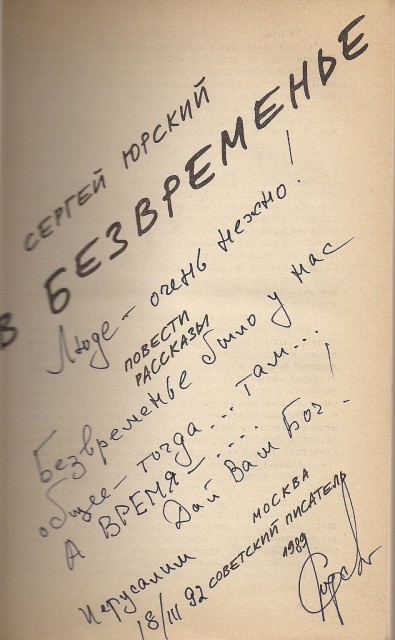 СЕРГЕЙ ЮРСКИЙ
В БЕЗВРЕМЕНЬЕ
Люде – очень нежно!
ПОВЕСТИ
РАССКАЗЫ
Безвременье было у нас
общее – тогда... там...
А ВРЕМЯ – ....!
Дай Вам Бог –
Иерусалим
18/III 92
МОСКВА
СОВЕТСКИЙ ПИСАТЕЛЬ
1989